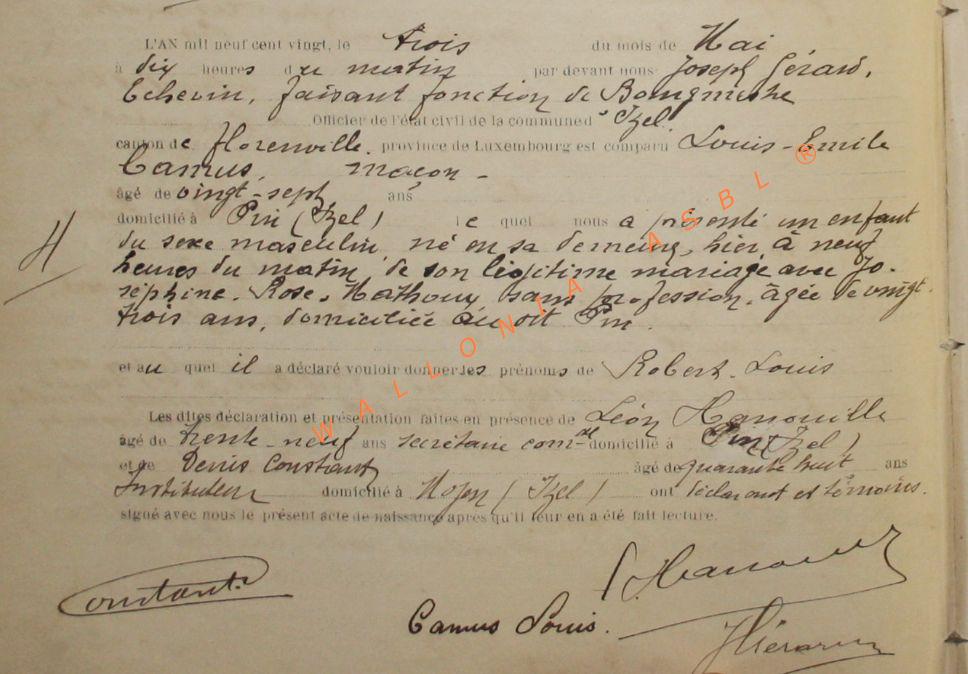 L'AN mil neuf cent vingt, le trois du mois de Mai
à dix heures du matin par devant nous Joseph Gérard,
Echevin, faisant fonction de Bourgmestre
Officier de l'état civil de la commune d'Izel
canton de Florenville province de Luxembourg est comparu Louis-Emile
Camus, maçon -
âgé de vingt-sept ans
domicilié à Pin (Izel) le quel nous a présenté un enfant
du sexe masculin, né en sa demeure, hier à neuf
heures du matin, de son légitime mariage avec Jo-
séphine-Rose-Mathoux, sans profession, âgée de vingt-
trois ans, domiciliée au dit Pin.
et au quel il a déclaré vouloir donner les prénoms de Robert-Louis
Les dites déclaration et présentation faites en présence de Léon Hanouille
âgé de trente-neuf ans secrétaire com-al domicilié à Pin (Izel)
et de Denis Constant âgé de quarante huit ans
Instituteur domicilié à Moyen (Izel) ont déclarant et témoins
signé avec nous le présent acte de naissance après qu'il leur en a été fait lecture.
4
Constant
Camus Louis.
WALLONIA ASBL ®